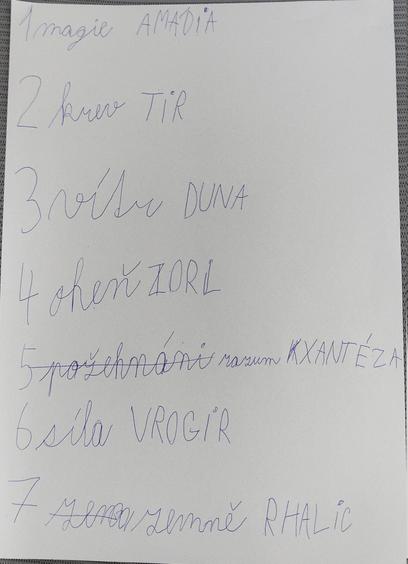 1 magie AMADiA
2 krev TiR
3 vítr DUNA
4 oheň IORL
5 požehnáni razum KXANTÉZA
6 síla VROGiR
7 zema zemně RHALiC